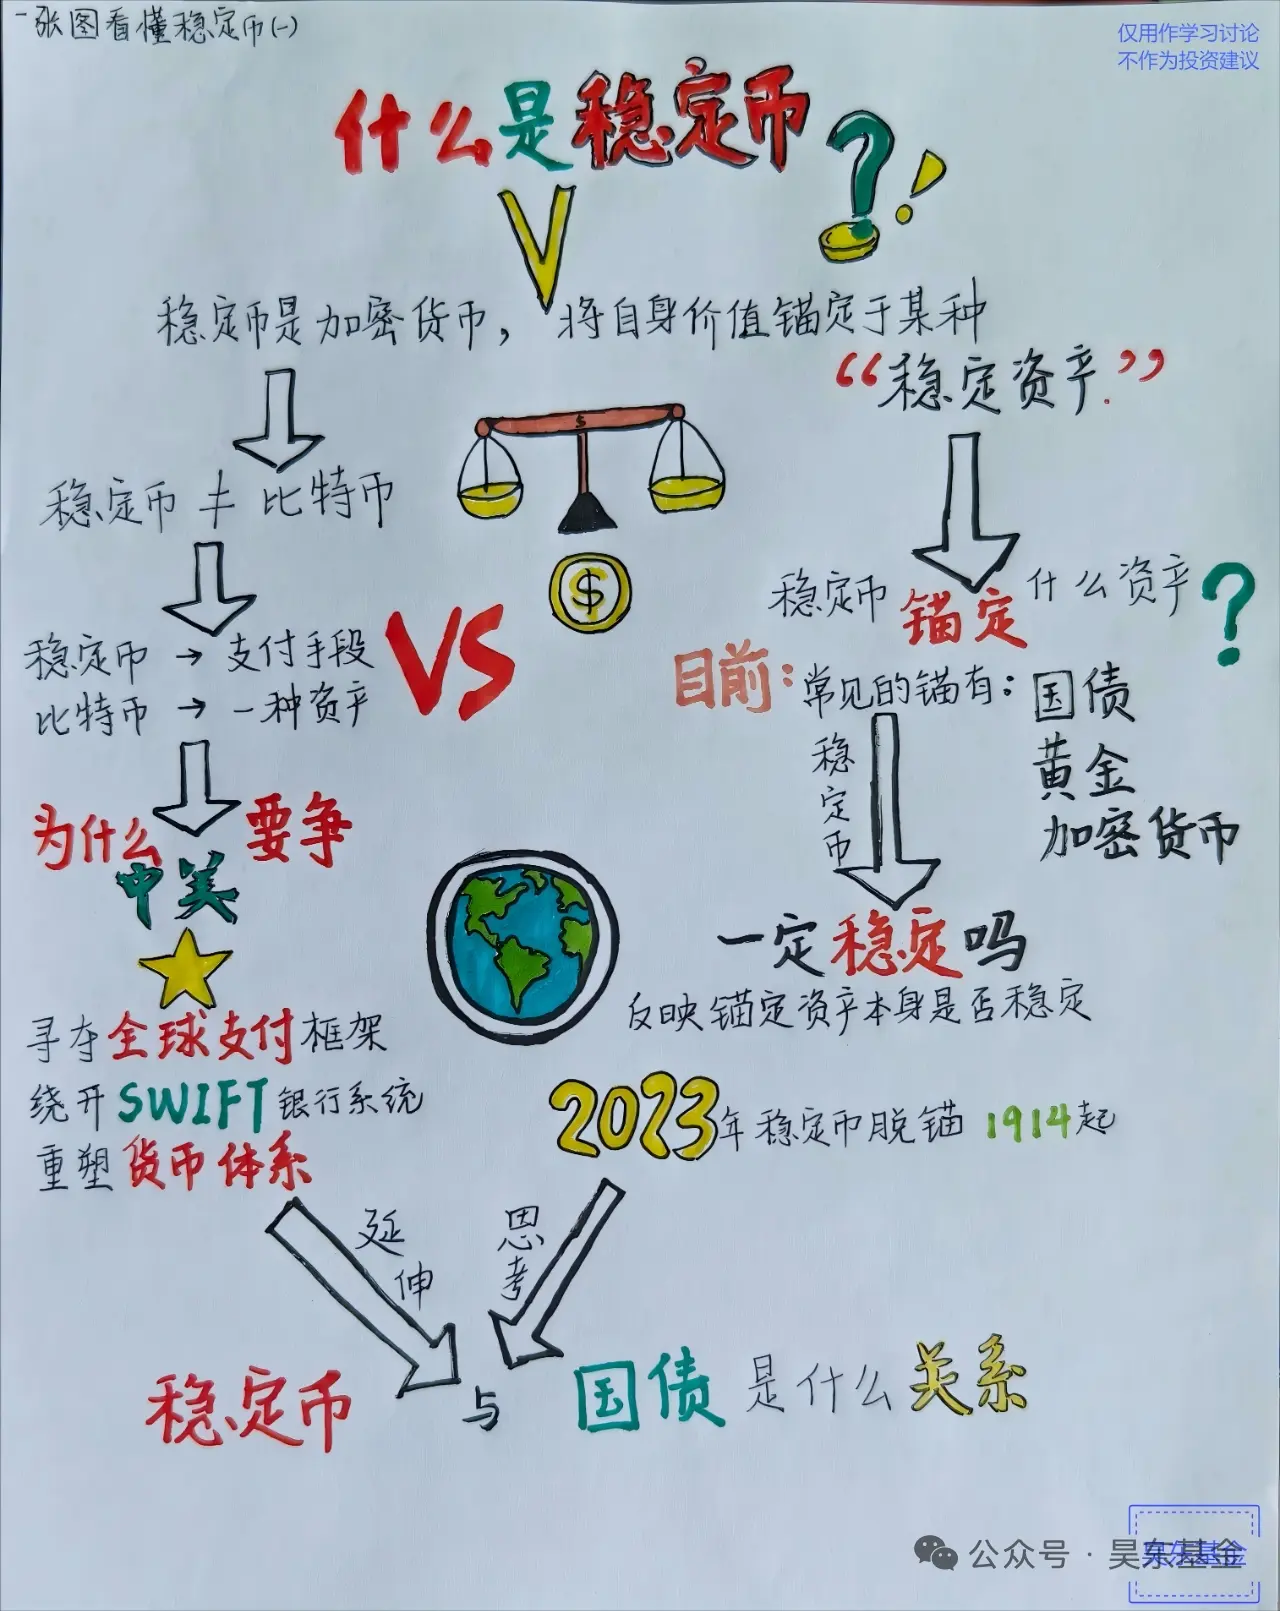 一张图看懂稳定币(一)
仅用作学习讨论
不作为投资建议
什么是稳定币?!
稳定币是加密货币，将自身价值锚定于某种
“稳定资产.”
稳定币≠比特币
稳定币→支付手段
比特币→一种资产
VS
$
为什么
中美
要争
寻夺全球支付框架
绕开SWIFT银行系统
重塑货币体系
稳定币锚定什么资产?
目前:常见的锚有:国债
黄金
加密货币
稳定币
一定稳定吗
反映锚定资产本身是否稳定
2023年稳定币脱锚1914起
延伸
思考
稳定币与国债是什么关系
公众号·昊东基金
昊东基金